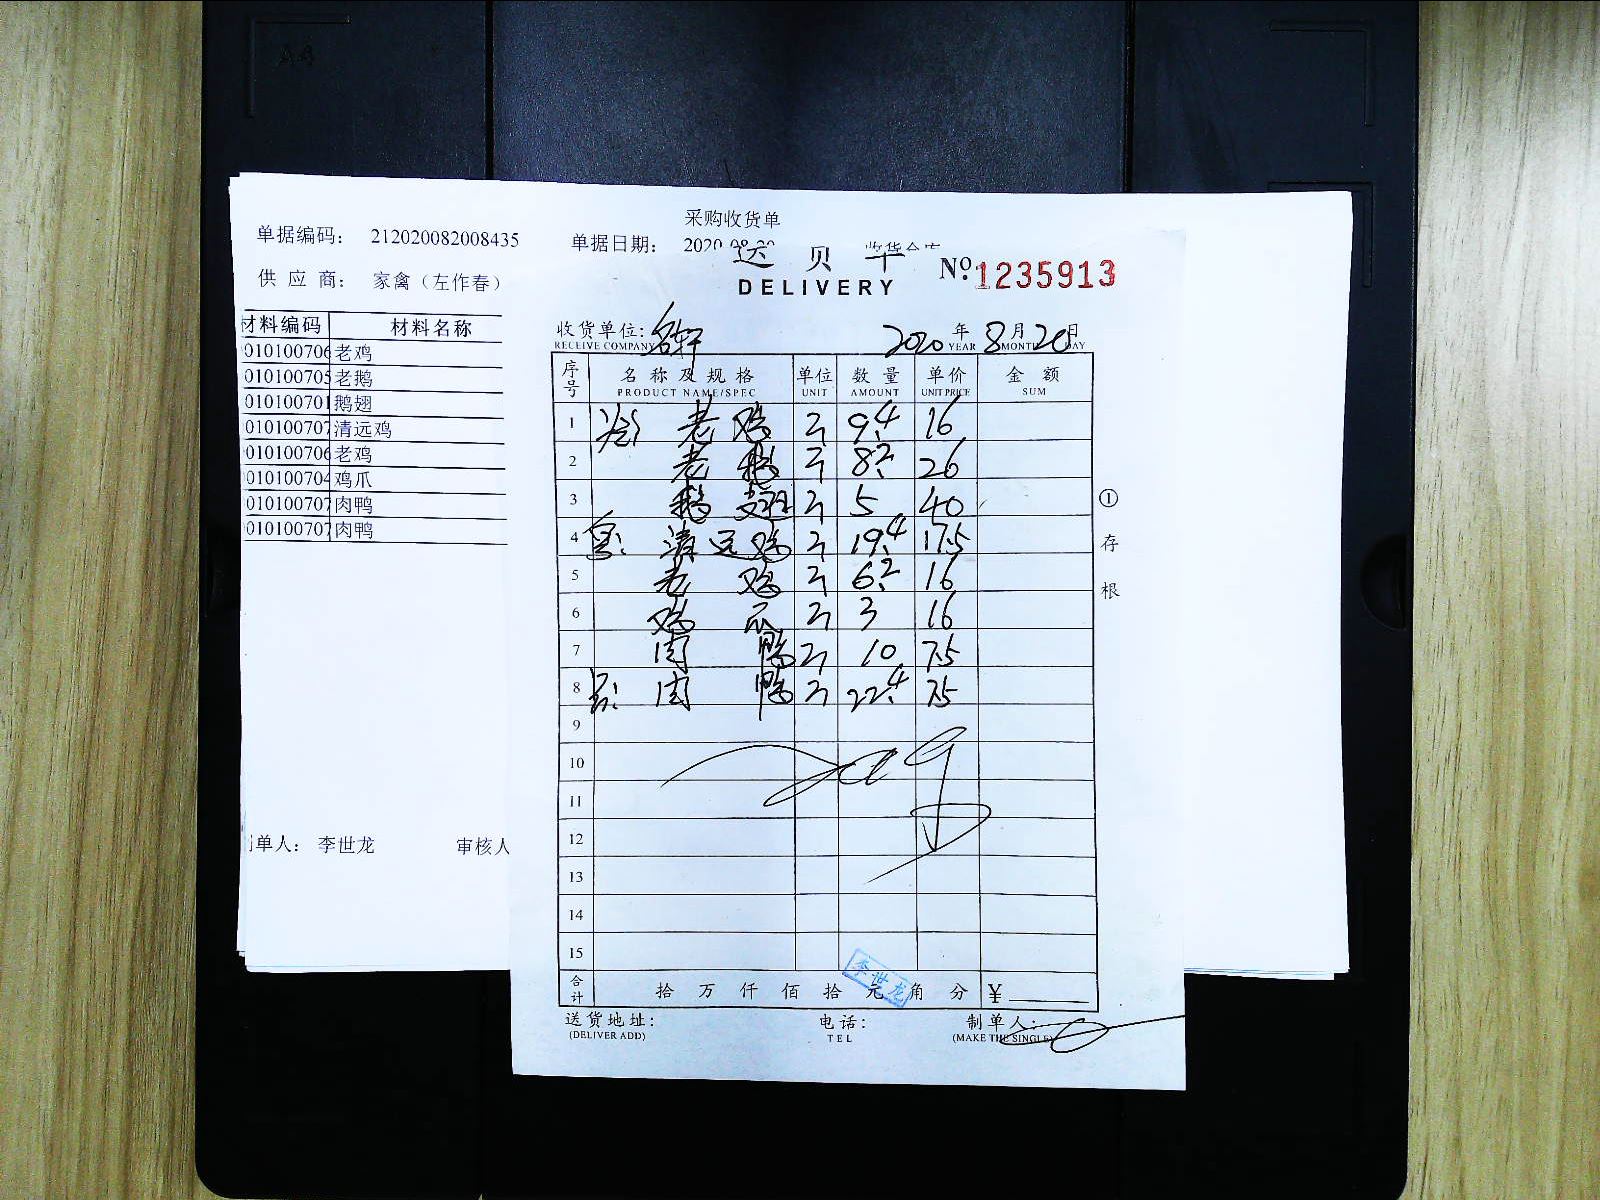 采购收货单
单据编码： 212020082008435 单据日期： 2020
供 应 商： 家禽（左作春）
材料编码 材料名称
010100706 老鸡
010100705 老鹅
010100701 鹅翅
010100707 清远鸡
010100706 老鸡
010100704 鸡爪
010100707 肉鸭
010100707 肉鸭
单人： 李世龙 审核人
送 货 单
DELIVERY
No. 1235913
收货单位: 名轩 2020 年 8 月 20 日
RECEIVE COMPANY YEAR MONTH DAY
序号 名 称 及 规 格 单位 数 量 单价 金 额
PRODUCT NAME/SPEC UNIT AMOUNT UNIT PRICE SUM
1 老鸡 斤 9.4 16
2 老鹅 斤 8.2 26
3 鹅翅 斤 5 40
4 清远鸡 斤 19.4 17.5
5 老鸡 斤 6.2 16
6 鸡爪 斤 3 16
7 肉鸭 斤 10 7.5
8 肉鸭 斤 22.4 7.5
9
10
11
12
13
14
15
合计 拾 万 仟 佰 拾 元 角 分 ¥
李世龙
送货地址: 电话: 制单人:
(DELIVER ADD) TEL (MAKE THE SINGLE)
①存根